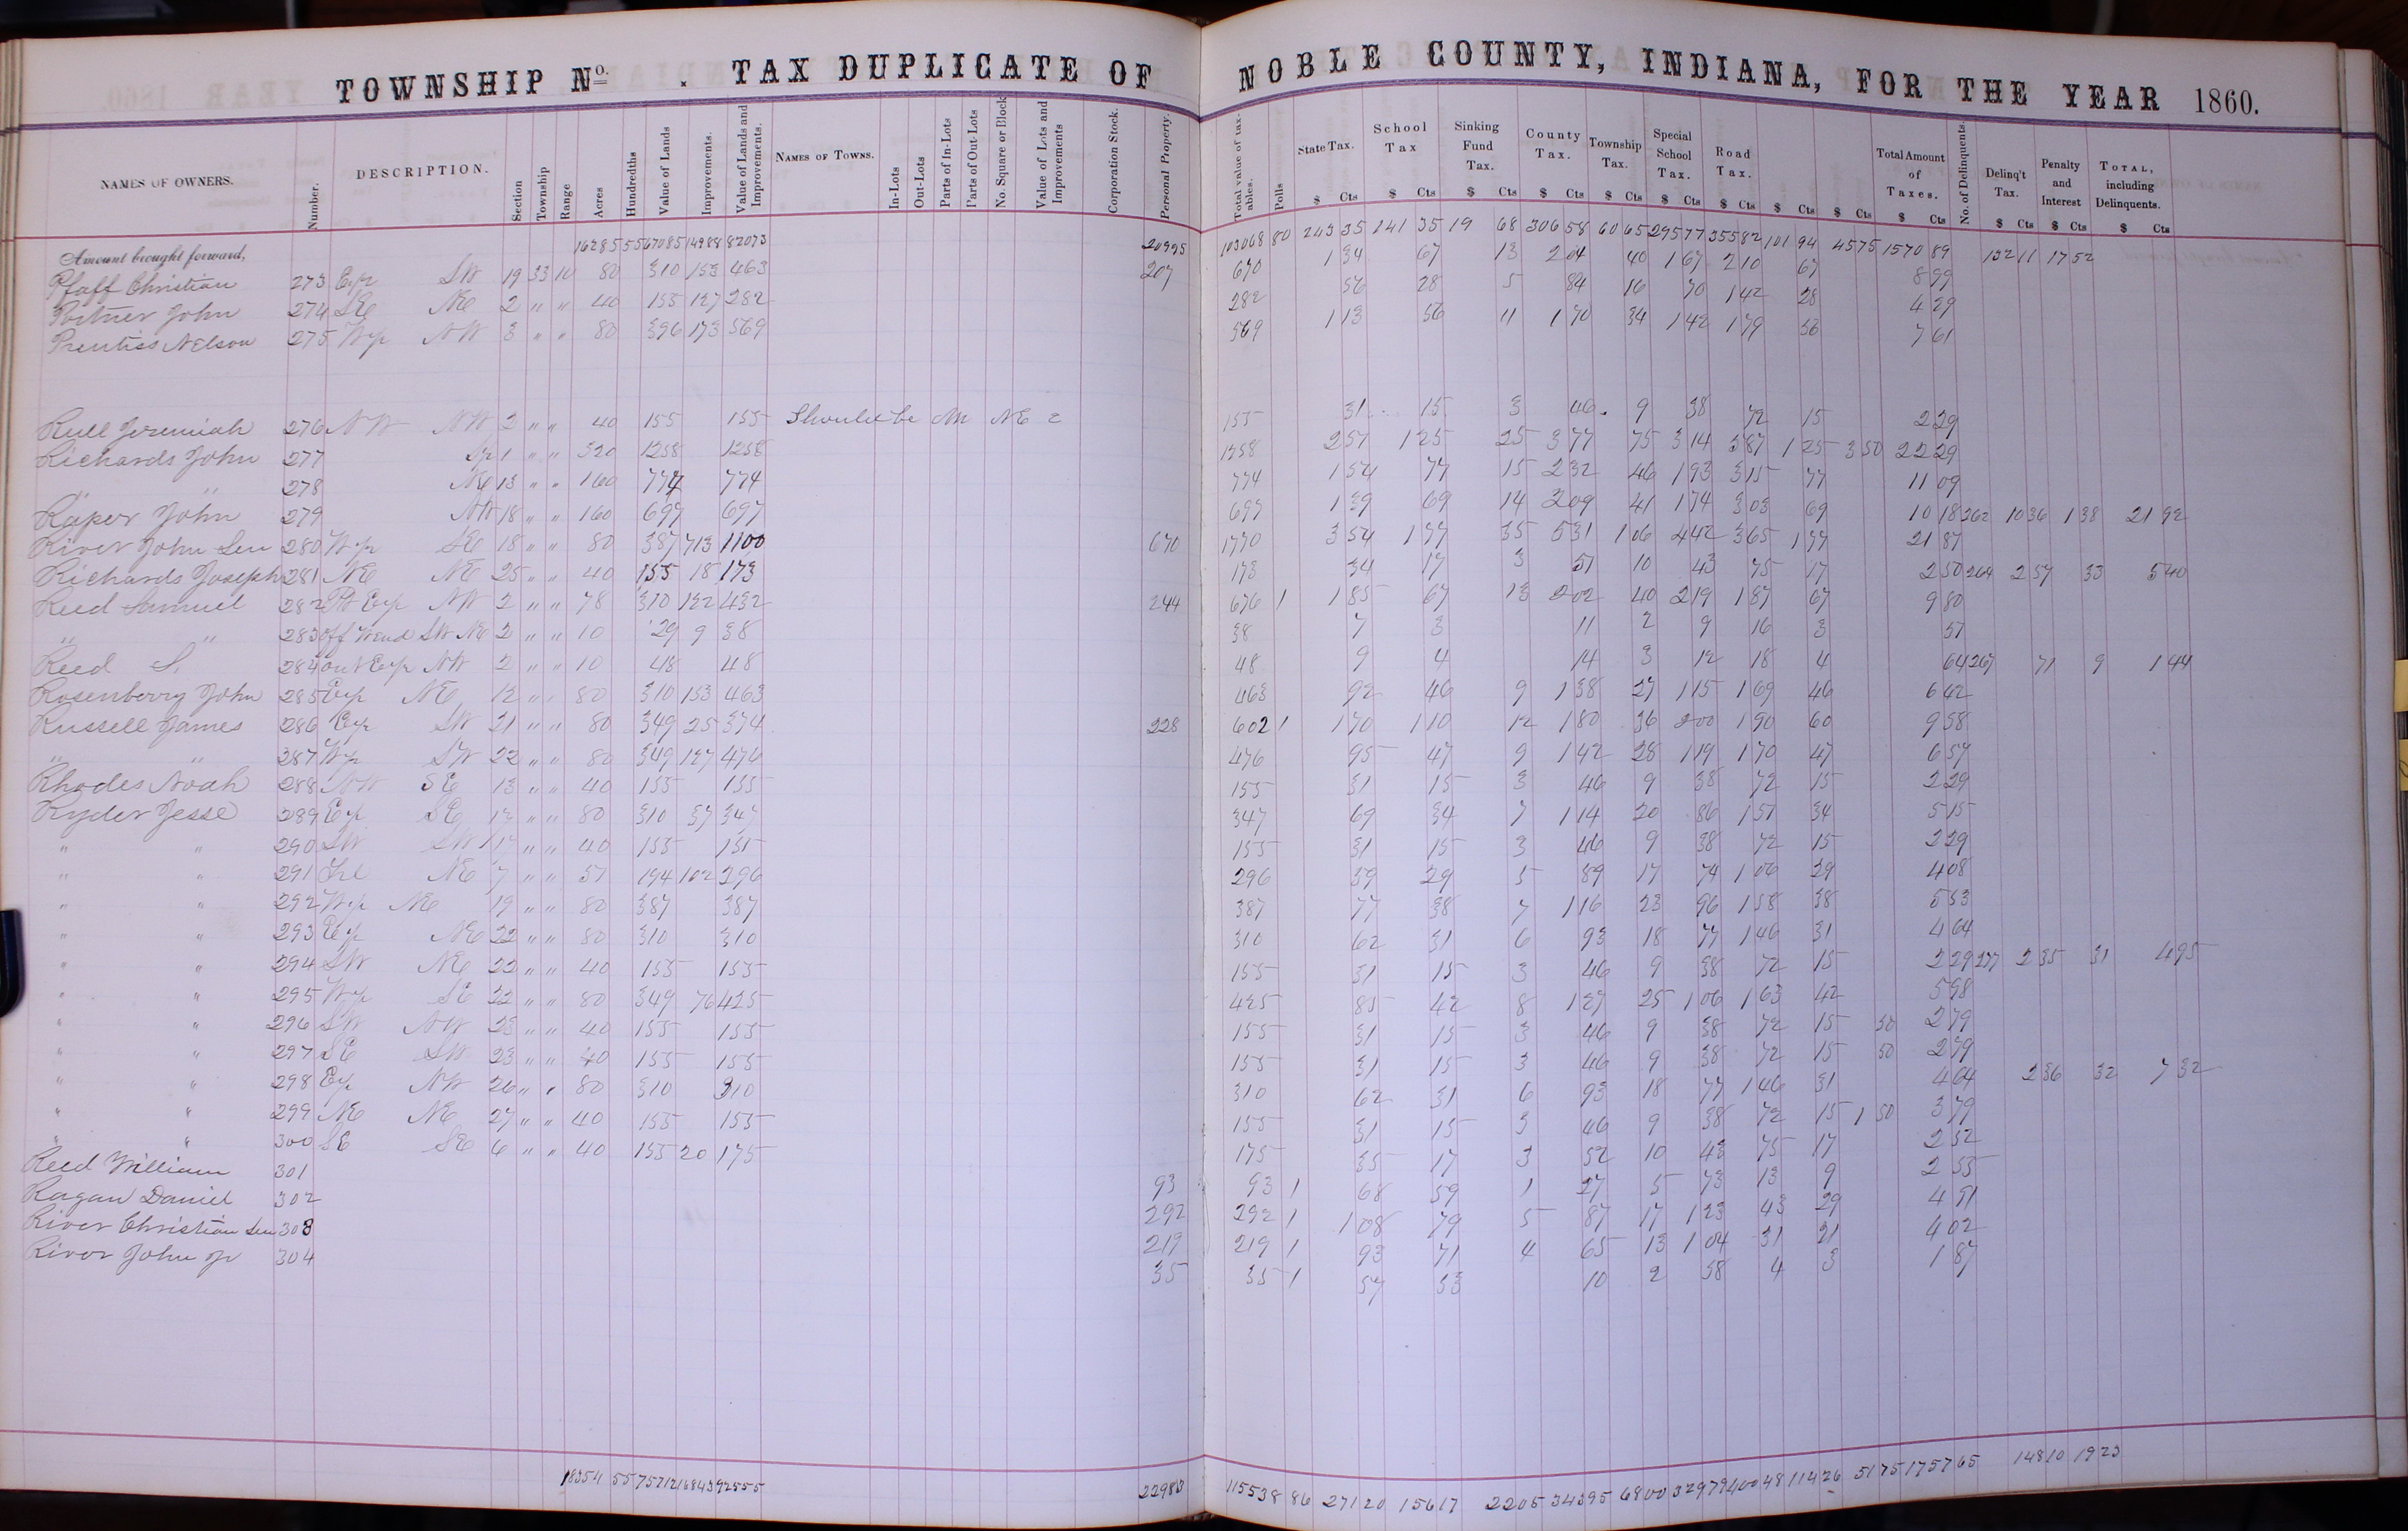 TOWNSHIP No. . TAX DUPLICATE OF NOBLE COUNTY, INDIANA, FOR THE YEAR 1860.
NAMES OF OWNERS. Number. DESCRIPTION. Section Township Range Acres Hundredths Value of Lands Improvements. Value of Lands and Improvements. NAMES OF TOWNS. In-Lots Out-Lots Parts of In-Lots Parts of Out-Lots No. Square or Block Value of Lots and Improvements Corporation Stock. Personal Property. Total value of taxables. Polls State Tax. School Tax Sinking Fund Tax. County Tax. Township Tax. Special School Tax. Road Tax. Total Amount of Taxes. No. of Delinquents. Delinq't Tax. Penalty and Interest TOTAL, including Delinquents.
$ Cts $ Cts $ Cts $ Cts $ Cts $ Cts $ Cts $ Cts $ Cts $ Cts $ Cts $ Cts $ Cts
Amount brought forward, 16285 55 67085 14988 82073 20995 103068 80 243 35 141 35 19 68 306 58 60 65 295 77 355 82 101 94 45 75 1570 89 132 11 17 52
Pfaff Christian 273 E p SW 19 33 10 80 310 153 463 207 670 1 34 67 13 2 04 40 1 67 2 10 67 8 99
Portner John 274 SE NE 2 " " 40 155 127 282 282 56 28 5 84 16 70 1 42 28 4 29
Prentiss Nelson 275 W p NW 3 " " 80 396 173 569 569 1 13 56 11 1 70 34 1 42 1 79 56 7 61
Rull Jeremiah 276 NW NW 2 " " 40 155 155 Should be NW NE 2 155 31 15 3 46 9 38 72 15 2 29
Richards John 277 1 " " 320 1258 1258 1258 2 51 1 25 25 3 77 75 3 14 3 87 1 25 3 50 22 29
" " 278 NE 13 " " 160 774 774 774 1 54 77 15 2 32 46 1 93 3 15 77 11 09
Raper John 279 NW 18 " " 160 697 697 697 1 39 69 14 2 09 41 1 74 3 03 69 10 18 262 10 36 1 38 21 92
River John Sen 280 W p SE 18 " " 80 387 713 1100 670 1770 3 54 1 77 35 5 31 1 06 4 42 3 65 1 77 21 87
Richards Joseph 281 NE NE 25 " " 40 155 18 173 173 34 17 3 51 10 43 75 17 2 50 264 2 57 33 5 40
Reed Samuel 282 Pt E p NW 2 " " 78 310 122 432 244 676 1 1 85 67 13 2 02 40 2 19 1 87 67 9 80
" " 283 off W end SW NE 2 " " 10 29 9 38 38 7 3 11 2 9 16 3 51
Reed S. 284 out E p NW 2 " " 10 48 48 48 9 4 14 3 12 18 4 64 267 71 9 1 44
Rosenberry John 285 E p NE 12 " " 80 310 153 463 463 92 46 9 1 38 27 1 15 1 69 46 6 42
Russell James 286 E p SW 21 " " 80 349 25 374 228 602 1 1 70 1 10 12 1 80 36 2 00 1 90 60 9 58
" " 287 W p SW 22 " " 80 349 127 476 476 95 47 9 1 42 28 1 19 1 70 47 6 57
Rhodes Noah 288 NW SE 13 " " 40 155 155 155 31 15 3 46 9 38 72 15 2 29
Ryder Jesse 289 E p SE 12 " " 80 310 37 347 347 69 34 7 1 14 20 86 1 51 34 5 15
" " 290 SW SW 17 " " 40 155 155 155 31 15 3 46 9 38 72 15 2 29
" " 291 NE 7 " " 57 194 102 296 296 59 29 5 89 17 74 1 06 29 4 08
" " 292 W p NE 19 " " 80 387 387 387 77 38 7 1 16 23 96 1 58 38 5 53
" " 293 E p NE 22 " " 80 310 310 310 62 31 6 93 18 77 1 46 31 4 64
" " 294 SW NE 22 " " 40 155 155 155 31 15 3 46 9 38 72 15 2 29 277 2 35 31 4 95
" " 295 W p SE 22 " " 80 349 76 425 425 85 42 8 1 27 25 1 06 1 63 42 5 98
" " 296 SW NW 23 " " 40 155 155 155 31 15 3 46 9 38 72 15 50 2 79
" " 297 SE SW 23 " " 40 155 155 155 31 15 3 46 9 38 72 15 50 2 79
" " 298 E p NW 26 " " 80 310 310 310 62 31 6 93 18 77 1 46 31 4 64 2 36 32 7 32
" " 299 NE NE 27 " " 40 155 155 155 31 15 3 46 9 38 72 15 1 50 3 79
" " 300 SE SE 6 " " 40 155 20 175 175 35 17 3 52 10 43 75 17 2 52
Reed William 301 93 93 1 68 59 1 27 5 73 13 9 2 55
Ragan Daniel 302 292 292 1 1 08 79 5 87 17 1 23 43 29 4 91
River Christian Sen 303 219 219 1 93 71 4 65 13 1 04 31 21 4 02
River John Jr 304 35 35 1 57 53 10 2 58 4 3 1 87
18354 55 75712 16843 92555 22983 115538 86 271 20 156 17 22 05 343 95 68 00 329 79 400 48 114 26 51 75 1757 65 148 10 19 23